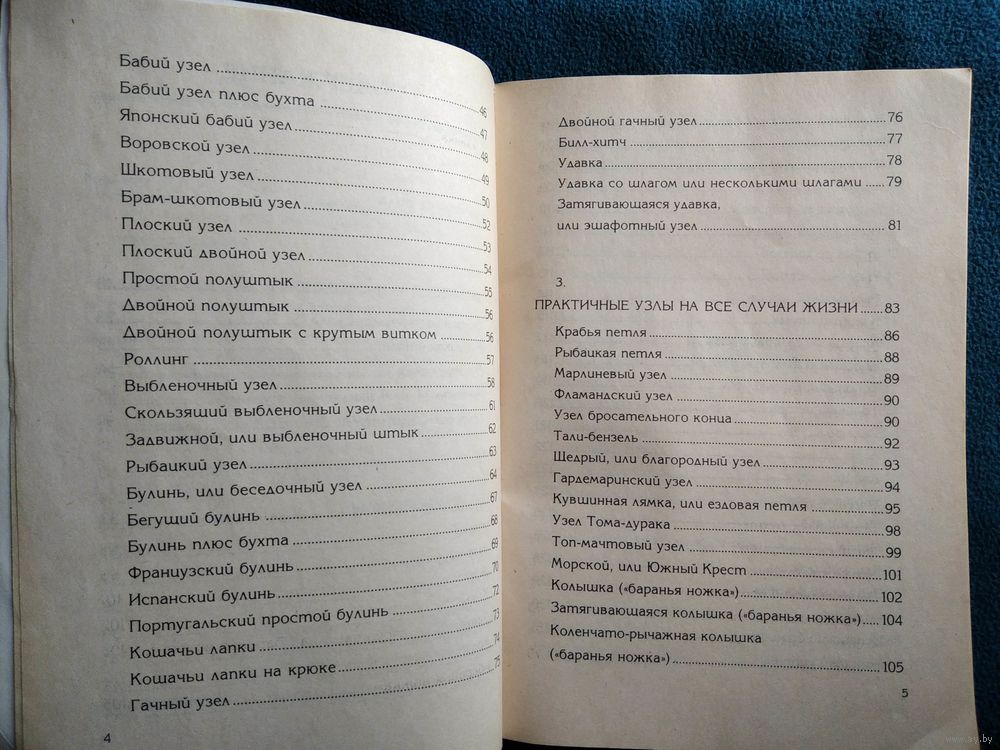 Бабий узел ........ 46
Бабий узел плюс бухта ........ 47
Японский бабий узел ........ 48
Воровской узел ........ 49
Шкотовый узел ........ 50
Брам-шкотовый узел ........ 52
Плоский узел ........ 53
Плоский двойной узел ........ 54
Простой полуштык ........ 55
Двойной полуштык ........ 56
Двойной полуштык с крутым витком ........ 56
Роллинг ........ 57
Выбленочный узел ........ 58
Скользящий выбленочный узел ........ 61
Задвижной, или выбленочный штык ........ 62
Рыбацкий узел ........ 63
Булинь, или беседочный узел ........ 64
Бегущий булинь ........ 67
Булинь плюс бухта ........ 68
Французский булинь ........ 69
Испанский булинь ........ 70
Португальский простой булинь ........ 72
Кошачьи лапки ........ 73
Кошачьи лапки на крюке ........ 74
Гачный узел ........ 75
4
Двойной гачный узел ........ 76
Билл-хитч ........ 77
Удавка ........ 78
Удавка со шлагом или несколькими шлагами ..... 79
Затягивающаяся удавка,
или эшафотный узел ........ 81
3.
ПРАКТИЧНЫЕ УЗЛЫ НА ВСЕ СЛУЧАИ ЖИЗНИ ...... 83
Крабья петля ........ 86
Рыбацкая петля ........ 88
Марлиневый узел ........ 89
Фламандский узел ........ 90
Узел бросательного конца ........ 90
Тали-бензель ........ 92
Щедрый, или благородный узел ........ 93
Гардемаринский узел ........ 94
Кувшинная лямка, или ездовая петля ........ 95
Узел Тома-дурака ........ 98
Топ-мачтовый узел ........ 99
Морской, или Южный Крест ........ 101
Колышка («баранья ножка») ........ 102
Затягивающаяся колышка («баранья ножка») ..... 104
Коленчато-рычажная колышка
(«баранья ножка») ........ 105
5
www.ay.by